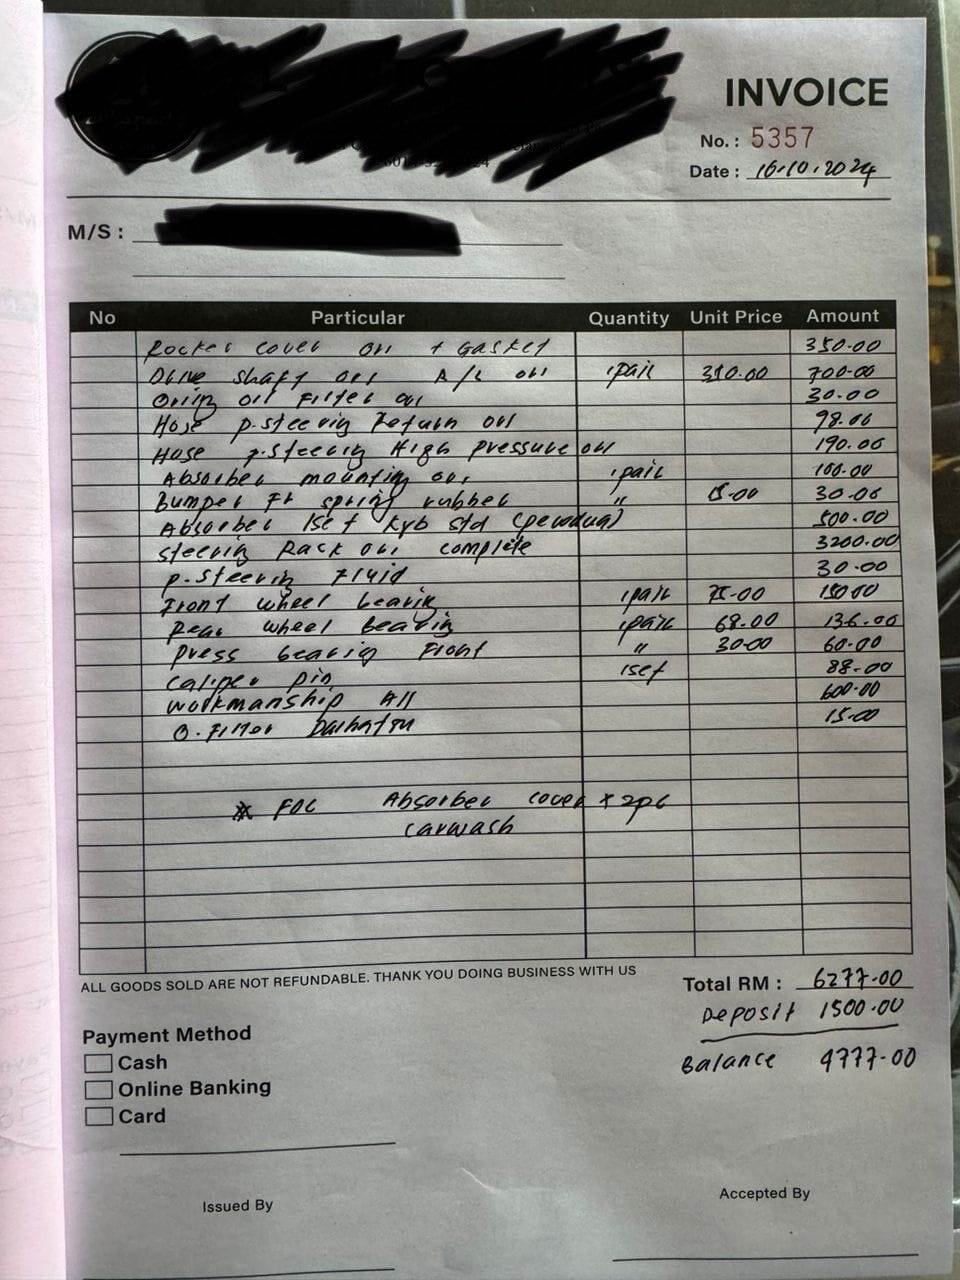 INVOICE
No. : 5357
Date : 16.10.2024
M/S :
No Particular Quantity Unit Price Amount
Rocker cover ori + Gasket 350.00
Drive shaft ori A/L ori 1pair 350.00 700.00
Oring oil Filter ori 30.00
Hose p.steering Return ori 98.00
Hose p.steering High pressure ori 190.00
Absorber mounting ori 1pair 100.00
Bumper Ft spring rubber " 15.00 30.00
Absorber 1set kyb std (perodua) 500.00
Steering Rack ori complete 3200.00
P.steering Fluid 30.00
Front wheel bearing 1pair 75.00 150.00
Rear wheel bearing 1pair 68.00 136.00
Press bearing Front " 30.00 60.00
Caliper pin 1set 88.00
Workmanship All 600.00
O.Filter Daihatsu 15.00
* FOC Absorber cover x 2pc
carwash
ALL GOODS SOLD ARE NOT REFUNDABLE. THANK YOU DOING BUSINESS WITH US
Total RM : 6277.00
Deposit 1500.00
Balance 4777.00
Payment Method
Cash
Online Banking
Card
Issued By
Accepted By